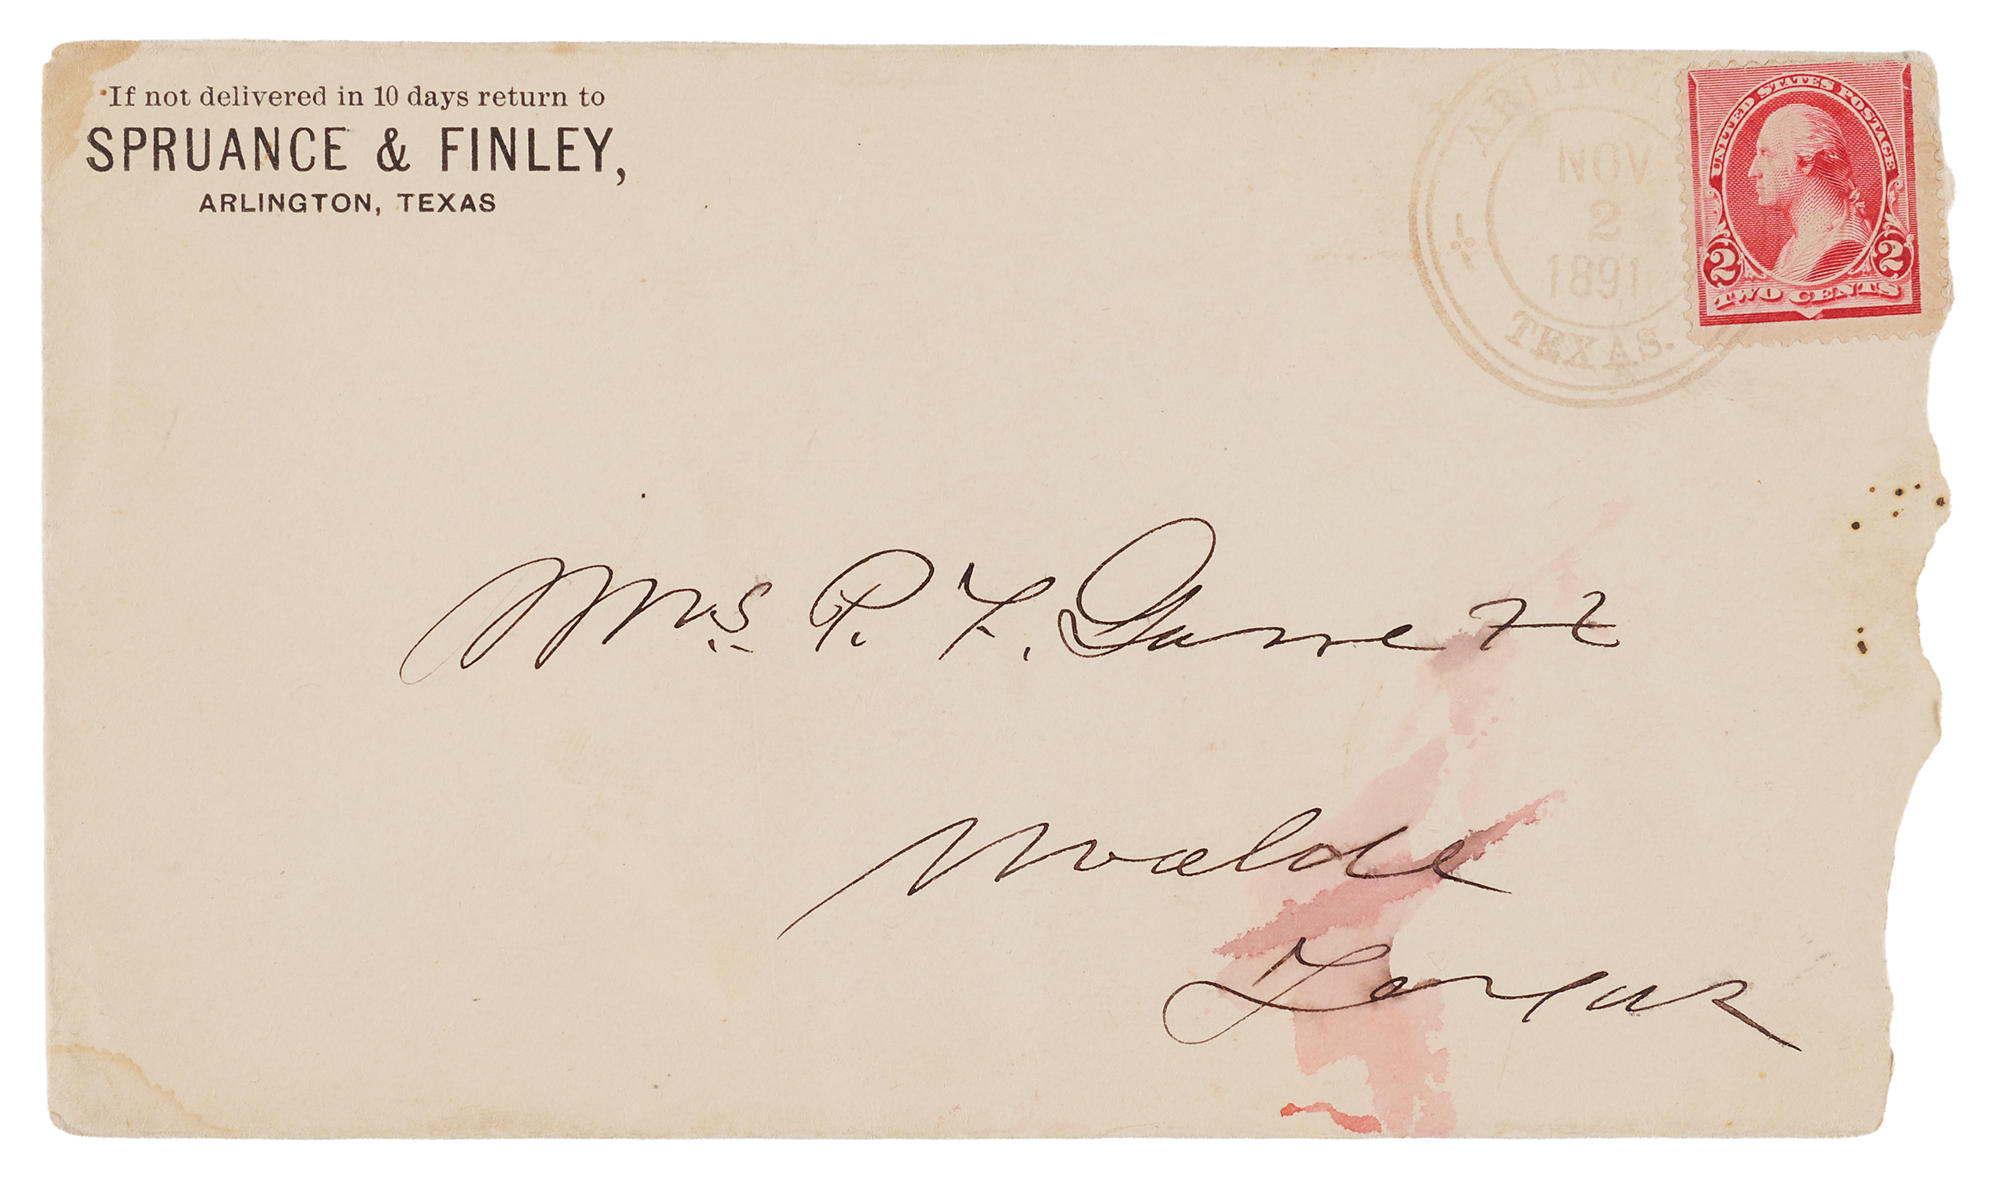 If not delivered in 10 days return to
SPRUANCE & FINLEY,
ARLINGTON, TEXAS
ARLINGT
NOV
2
1891
TEXAS.
UNITED STATES POSTAGE
2 2
TWO CENTS
Mrs. P. F. Garrett
Uvalde
Texas